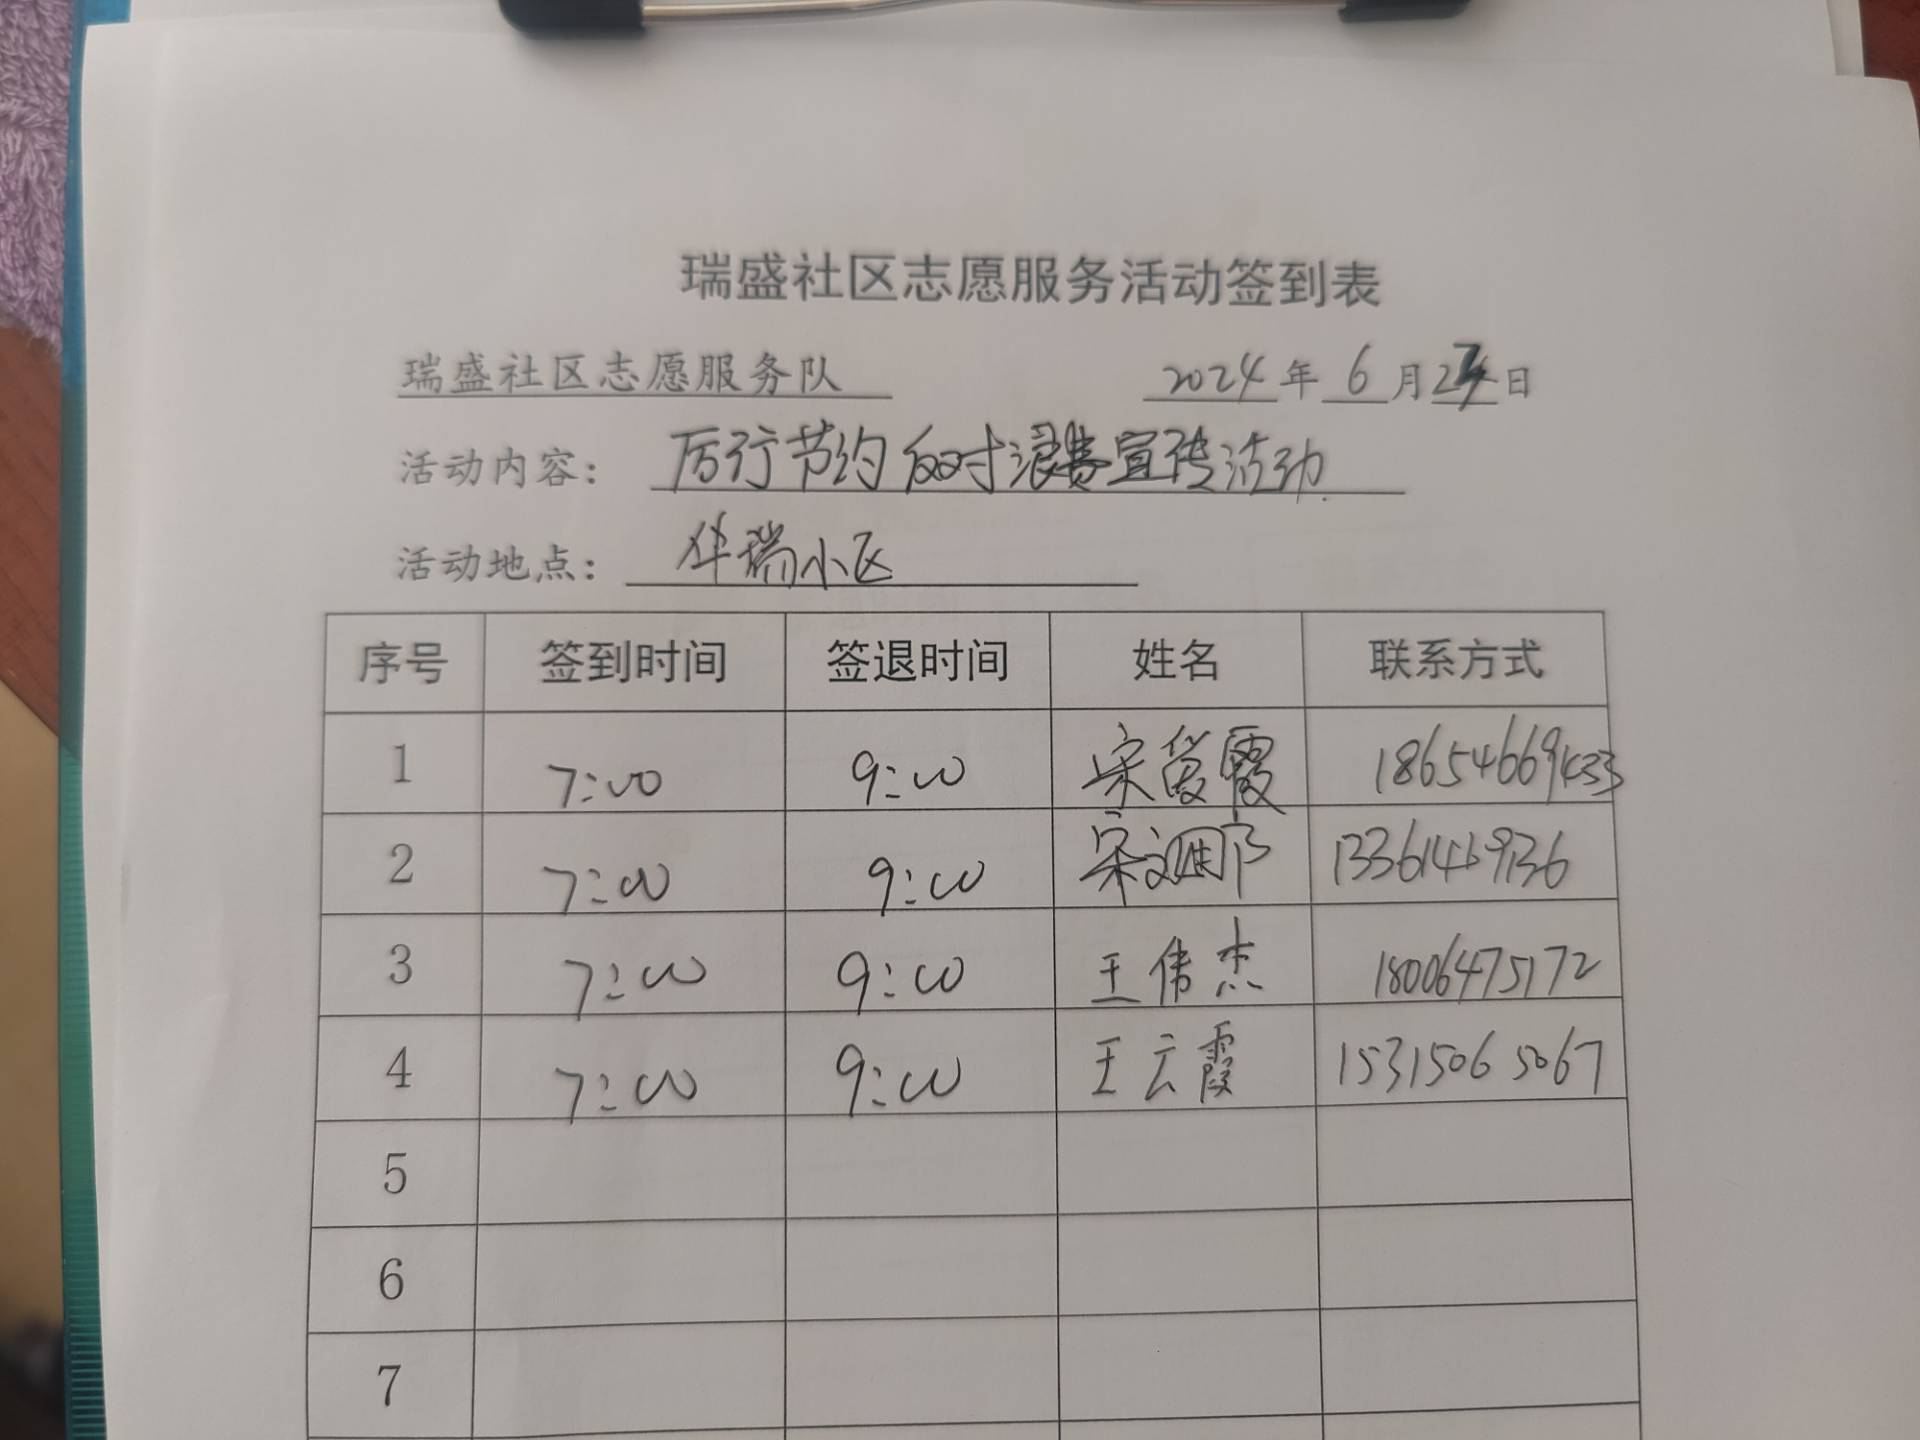 瑞盛社区志愿服务活动签到表
瑞盛社区志愿服务队 2024年6月日
活动内容：厉行节约反对浪费宣传活动
活动地点：华瑞小区
序号 签到时间 签退时间 姓名 联系方式
1 7:00 9:00 宋霞
2 7:00 9:00 宋
3 7:00 9:00 王伟杰 18006475172
4 7:00 9:00 王云霞 15315065067
5
6
7